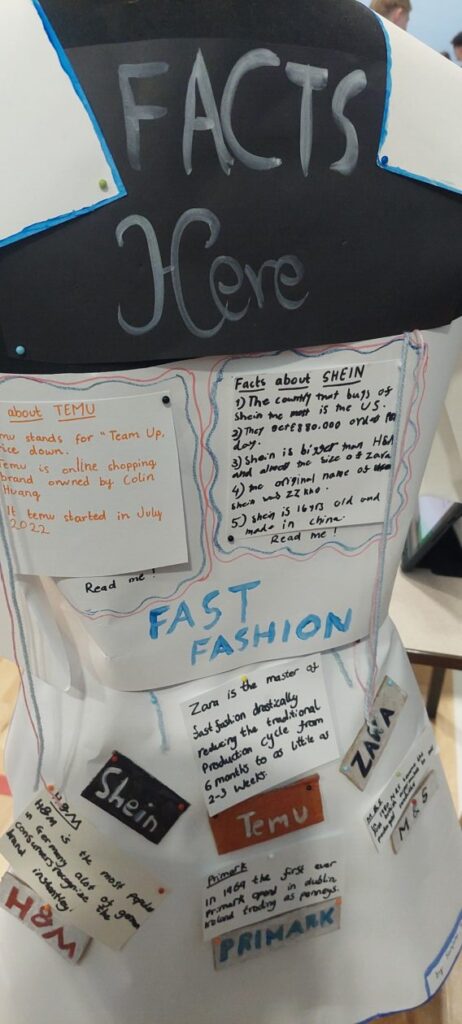 FACTS
Here
about TEMU
mu stands for "Team Up,
rice down.
Temu is online shopping
brand onwned by Colin
Huang
It temu started in July
2022
Read me!
Facts about SHEIN
1) The country that buys of
Shein the most is the US.
2) They 880.000 orders
day.
3) Shein is bigger than H&M
and almost the size of Zara
4) the original name of
shein was ZZkko.
5) shein is 16 yrs old and
made in china.
Read me!
FAST
FASHION
Zara is the master of
fast fashion drastically
reducing the traditional
Production cycle from
6 months to as little as
2-3 weeks.
ZARA
Shein
Temu
M & S
H&M
H&M is the most
in Germany alot of
consumers recognise the
brand instantley.
H&M
Primark
in 1969 the first ever
Primark opend in dublin
Ireland trading as penneys.
PRIMARK